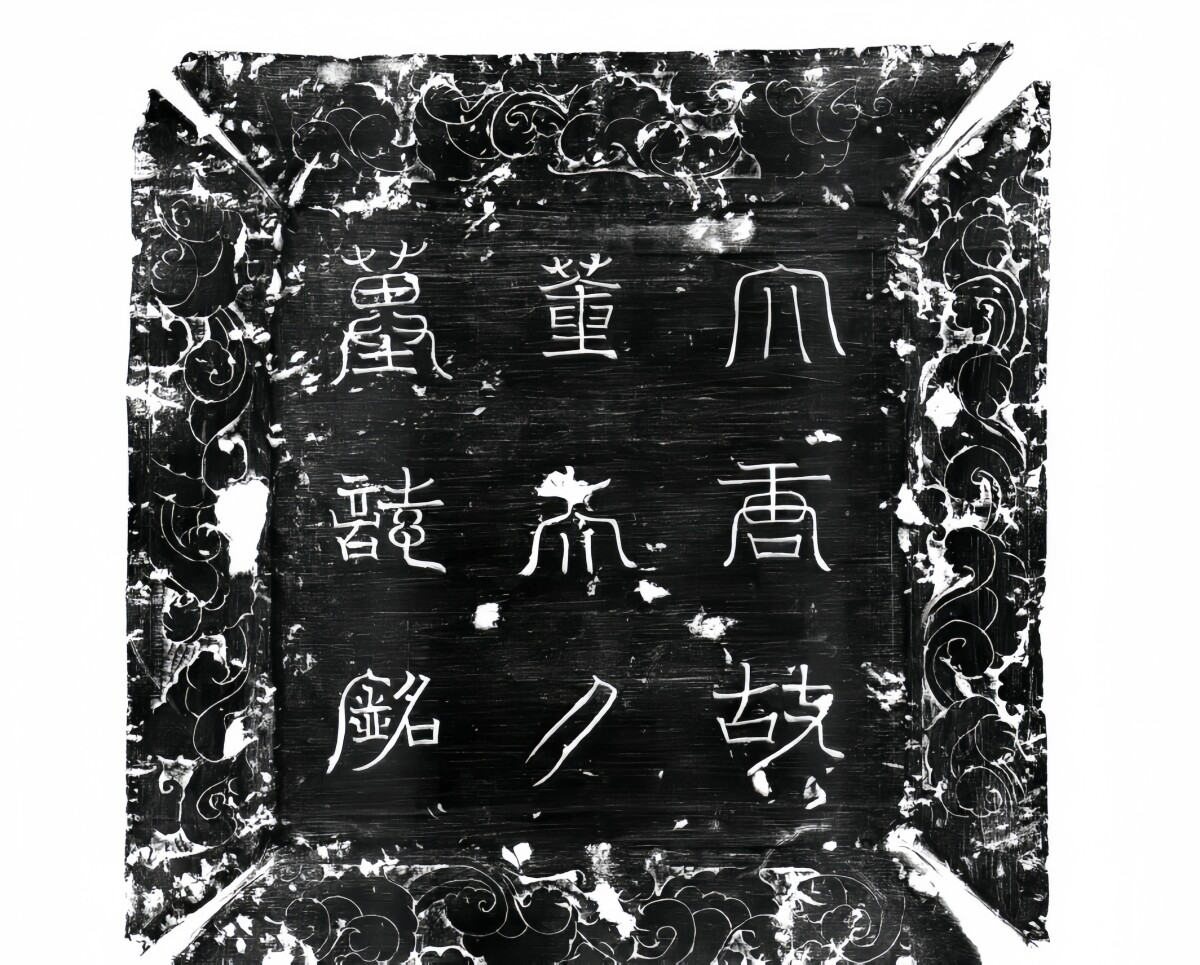 大唐故
董夫人
墓誌銘